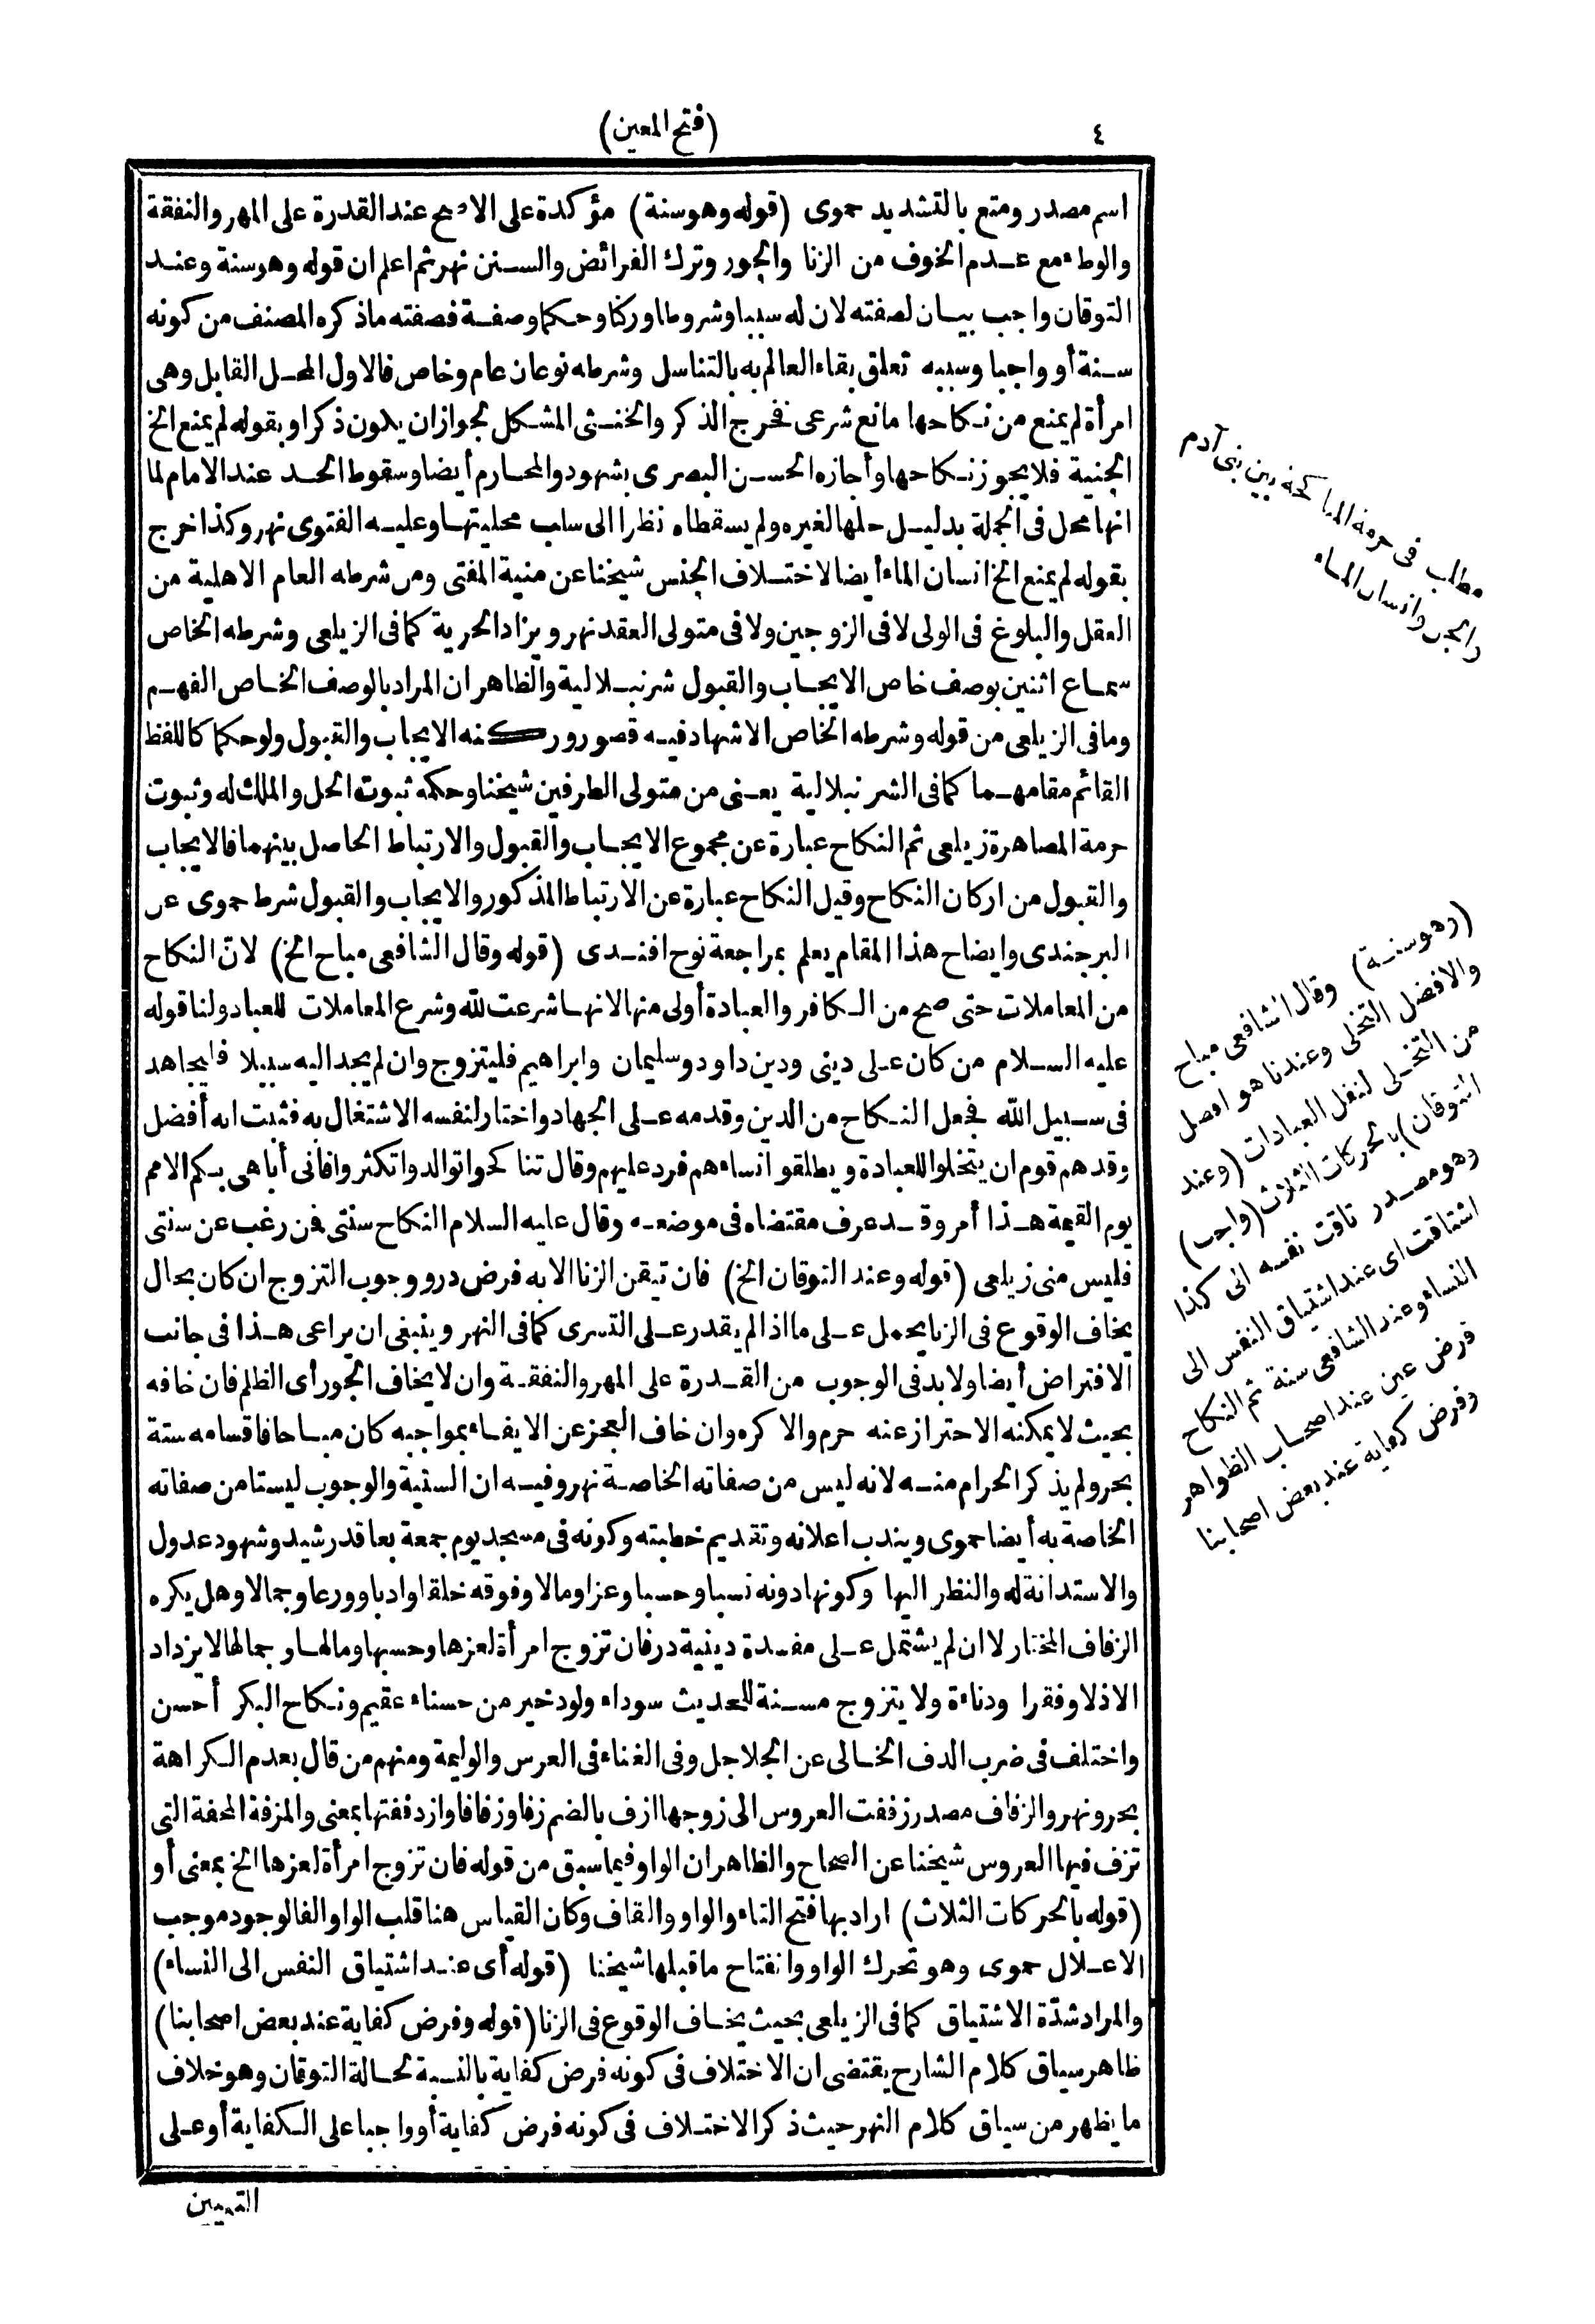 ٤
(فتح المعين)
اسم مصدر ومتع بالتشديد حموى (قوله وهو سنة) مؤكدة على الاصح عند القدرة على المهر والنفقة
والوطء مع عدم الخوف من الزنا والجور وترك الفرائض والسنن نهر ثم اعلم ان قوله وهو سنة وعند
التوقان واجب بيان لصفته لان له سببا وشروطا وركنا وحكما وصفة فصفته ماذكره المصنف من كونه
سنة أو واجبا وسببه تعلق بقاء العالم به بالتناسل وشرطه نوعان عام وخاص فالاول المحل القابل وهى
امرأة لم يمنع من نكاحها مانع شرعى فخرج الذكر والخنثى المشكل لجواز ان يكون ذكرا وبقوله لم يمنع الخ
الجنية فلا يجوز نكاحها وأجازه الحسن البصرى بشهود والمحارم أيضا وسقوط الحد عند الامام لما
انها محل فى الجملة بدليل حلها لغيره ولم يسقطاه نظرا الى سلب محليتها وعليه الفتوى نهر وكذا خرج
بقوله لم يمنع الخ انسان الماء أيضا لاختلاف الجنس شيخنا عن منية المفتى ومن شرطه العام الاهلية من
العقل والبلوغ فى الولى لا فى الزوجين ولا فى متولى العقد نهر ويزاد الحرية كما فى الزيلعى وشرطه الخاص
سماع اثنين بوصف خاص الايجاب والقبول شرنبلالية والظاهر ان المراد بالوصف الخاص الفهم
وما فى الزيلعى من قوله وشرطه الخاص الاشهاد فيه قصور وركنه الايجاب والقبول ولو حكما كاللفظ
القائم مقامهما كما فى الشرنبلالية يعنى من متولى الطرفين شيخنا وحكمه ثبوت الحل والملك له وثبوت
حرمة المصاهرة زيلعى ثم النكاح عبارة عن مجموع الايجاب والقبول والارتباط الحاصل بينهما فالايجاب
والقبول من اركان النكاح وقيل النكاح عبارة عن الارتباط المذكور والايجاب والقبول شرط حموى عن
البرجندى وايضاح هذا المقام يعلم بمراجعة نوح افندى (قوله وقال الشافعى مباح الخ) لان النكاح
من المعاملات حتى صح من الكافر والعبادة أولى منها لانها شرعت لله وشرع المعاملات للعباد ولنا قوله
عليه السلام من كان على دينى ودين داود وسليمان وابراهيم فليتزوج وان لم يجد اليه سبيلا فليجاهد
فى سبيل الله فجعل النكاح من الدين وقدمه على الجهاد واختار لنفسه الاشتغال به فثبت انه أفضل
وقد هم قوم ان يتخلوا للعبادة ويطلقوا نساءهم فرد عليهم وقال تناكحوا توالدوا تكثروا فانى أباهى بكم الامم
يوم القيمة هذا أمر وقد عرف مقتضاه فى موضعه وقال عليه السلام النكاح سنتى فمن رغب عن سنتى
فليس منى زيلعى (قوله وعند التوقان الخ) فان تيقن الزنا الا به فرض درر ووجوب التزوج ان كان بحال
يخاف الوقوع فى الزنا يحمل على ما اذا لم يقدر على التسرى كما فى النهر وينبغى ان يراعى هذا فى جانب
الافتراض أيضا ولا بد فى الوجوب من القدرة على المهر والنفقة وان لا يخاف الجور أى الظلم فان خافه
بحيث لا يمكنه الاحتراز عنه حرم والا كره وان خاف العجز عن الايفاء بمواجبه كان مباحا فاقسامه ستة
بحر ولم يذكر الحرام منه لانه ليس من صفاته الخاصة نهر وفيه ان السنية والوجوب ليستا من صفاته
الخاصة به أيضا حموى ويندب اعلانه وتقديم خطبته وكونه فى مسجد يوم جمعة بعاقد رشيد وشهود عدول
والاستدانة له والنظر اليها وكونها دونه نسبا وحسبا وعزا ومالا وفوقه خلقا وادبا وورعا وجمالا وهل يكره
الزفاف المختار لا ان لم يشتمل على مفسدة دينية در فان تزوج امرأة لعزها وحسبها ومالها وجمالها لا يزداد
الا ذلا وفقرا ودناءة ولا يتزوج مسنة للحديث سوداء ولود خير من حسناء عقيم ونكاح البكر أحسن
واختلف فى ضرب الدف الخالى عن الجلاجل وفى الغناء فى العرس والوليمة ومنهم من قال بعدم الكراهة
بحر ونهر والزفاف مصدر زففت العروس الى زوجها ازف بالضم زفا وزفافا وازدففتها بمعنى والمزفة المحفة التى
تزف فيها العروس شيخنا عن الصحاح والظاهر ان الواو فيما سبق من قوله فان تزوج امرأة لعزها الخ بمعنى أو
(قوله بالحركات الثلاث) اراد بها فتح التاء والواو والقاف وكان القياس هنا قلب الواو الفا لوجود موجب
الاعلال حموى وهو تحرك الواو وانفتاح ما قبلها شيخنا (قوله أى عند اشتياق النفس الى النساء)
والمراد شدّة الاشتياق كما فى الزيلعى بحيث يخاف الوقوع فى الزنا (قوله وفرض كفاية عند بعض اصحابنا)
ظاهر سياق كلام الشارح يقتضى ان الاختلاف فى كونه فرض كفاية بالنسبة لحالة التوقان وهو خلاف
ما يظهر من سياق كلام النهر حيث ذكر الاختلاف فى كونه فرض كفاية أو واجبا على الكفاية أو على
التعيين
مطلب فى حرمة المناكحة بين بنى آدم
والجن وانسان الماء
(وهو سنة) وقال الشافعى مباح
والافضل التخلى وعندنا هو افضل
من التخلى لنفل العبادات (وعند
التوقان) بالحركات الثلاث (واجب)
وهو مصدر تاقت نفسه الى كذا
اشتاقت اى عند اشتياق النفس الى
النساء وعند الشافعى سنة ثم النكاح
فرض عين عند اصحاب الظواهر
وفرض كفاية عند بعض اصحابنا